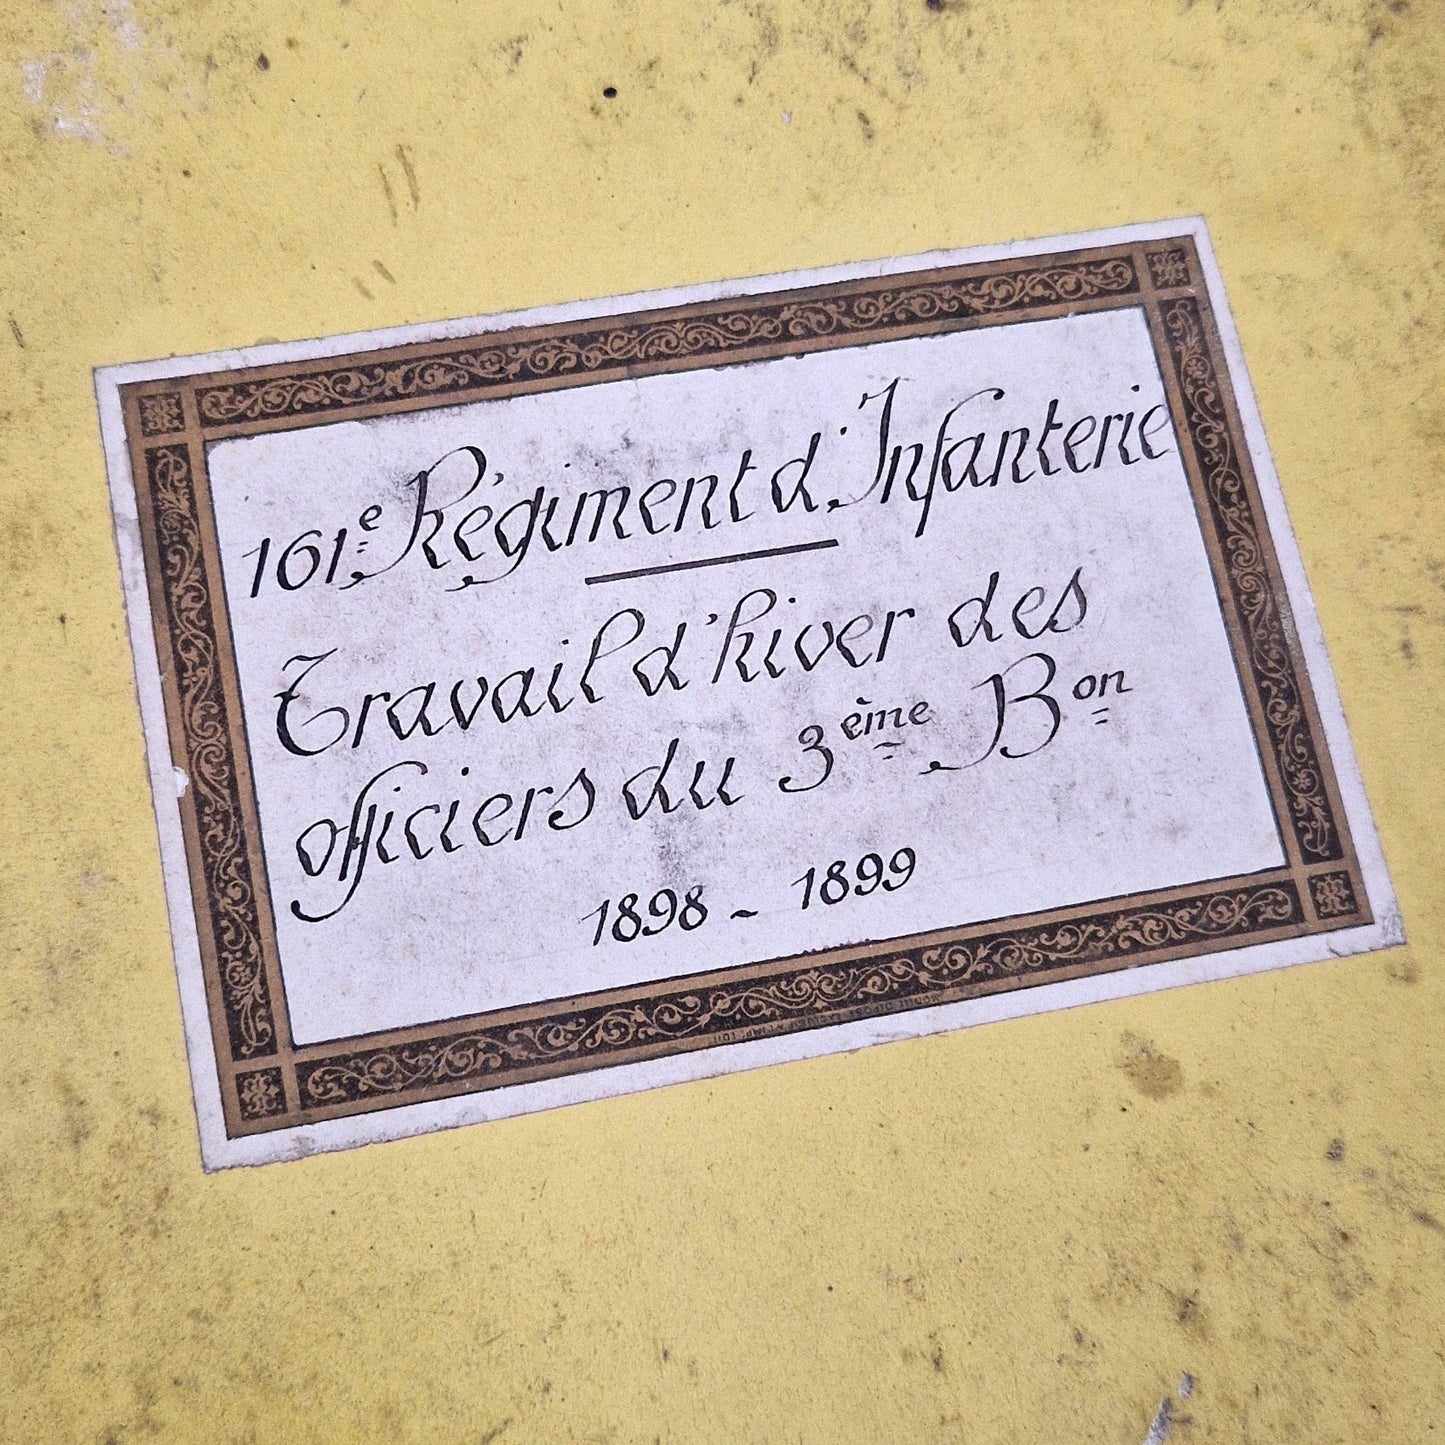 161e Régiment d'Infanterie
Travail d'hiver des
officiers du 3ème Bon
1898 - 1899